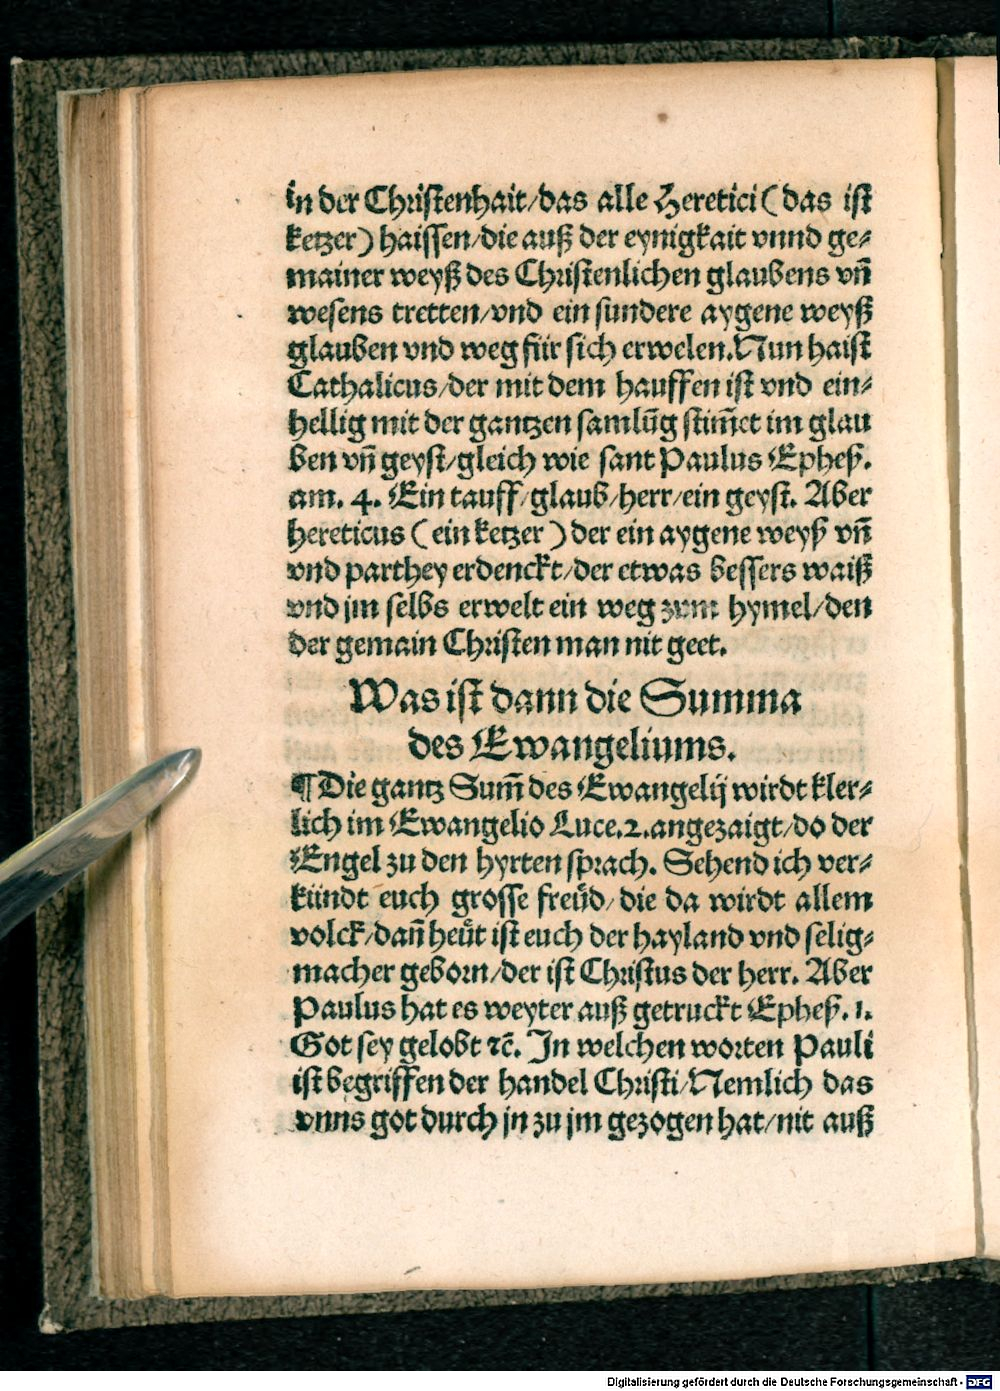 in der Christenhait/das alle Heretici (das ist
ketzer) haissen/die auß der eynigkait vnnd ge⸗
mainer weyß des Christenlichen glaubens vn̄
wesens tretten/vnd ein sundere aygene weyß
glauben vnd weg für sich erwelen. Nun haist
Cathalicus/der mit dem hauffen ist vnd ein⸗
hellig mit der gantzen samlūg stim̄et im glau
ben vn̄ geyst/gleich wie sant Paulus Ephes.
am. 4. Ein tauff/glaub/herr/ein geyst. Aber
hereticus (ein ketzer) der ein aygene weyß vn̄
vnd parthey erdenckt/der etwas bessers waiß
vnd jm selbs erwelt ein weg zum hymel/den
der gemain Christen man nit geet.
Was ist dann die Summa
des Ewangeliums.
¶ Die gantz Sum̄ des Ewangelij wirdt kler⸗
lich im Ewangelio Luce.2.angezaigt/do der
Engel zu den hyrten sprach. Sehend ich ver⸗
kündt euch grosse freüd/die da wirdt allem
volck/dan̄ heüt ist euch der hayland vnd selig⸗
macher geborn/der ist Christus der herr. Aber
Paulus hat es weyter auß getruckt Ephes. 1.
Got sey gelobt ⁊c̄. In welchen worten Pauli
ist begriffen der handel Christi/Nemlich das
vnns got durch jn zu jm gezogen hat/nit auß
Digitalisierung gefördert durch die Deutsche Forschungsgemeinschaft - DFG